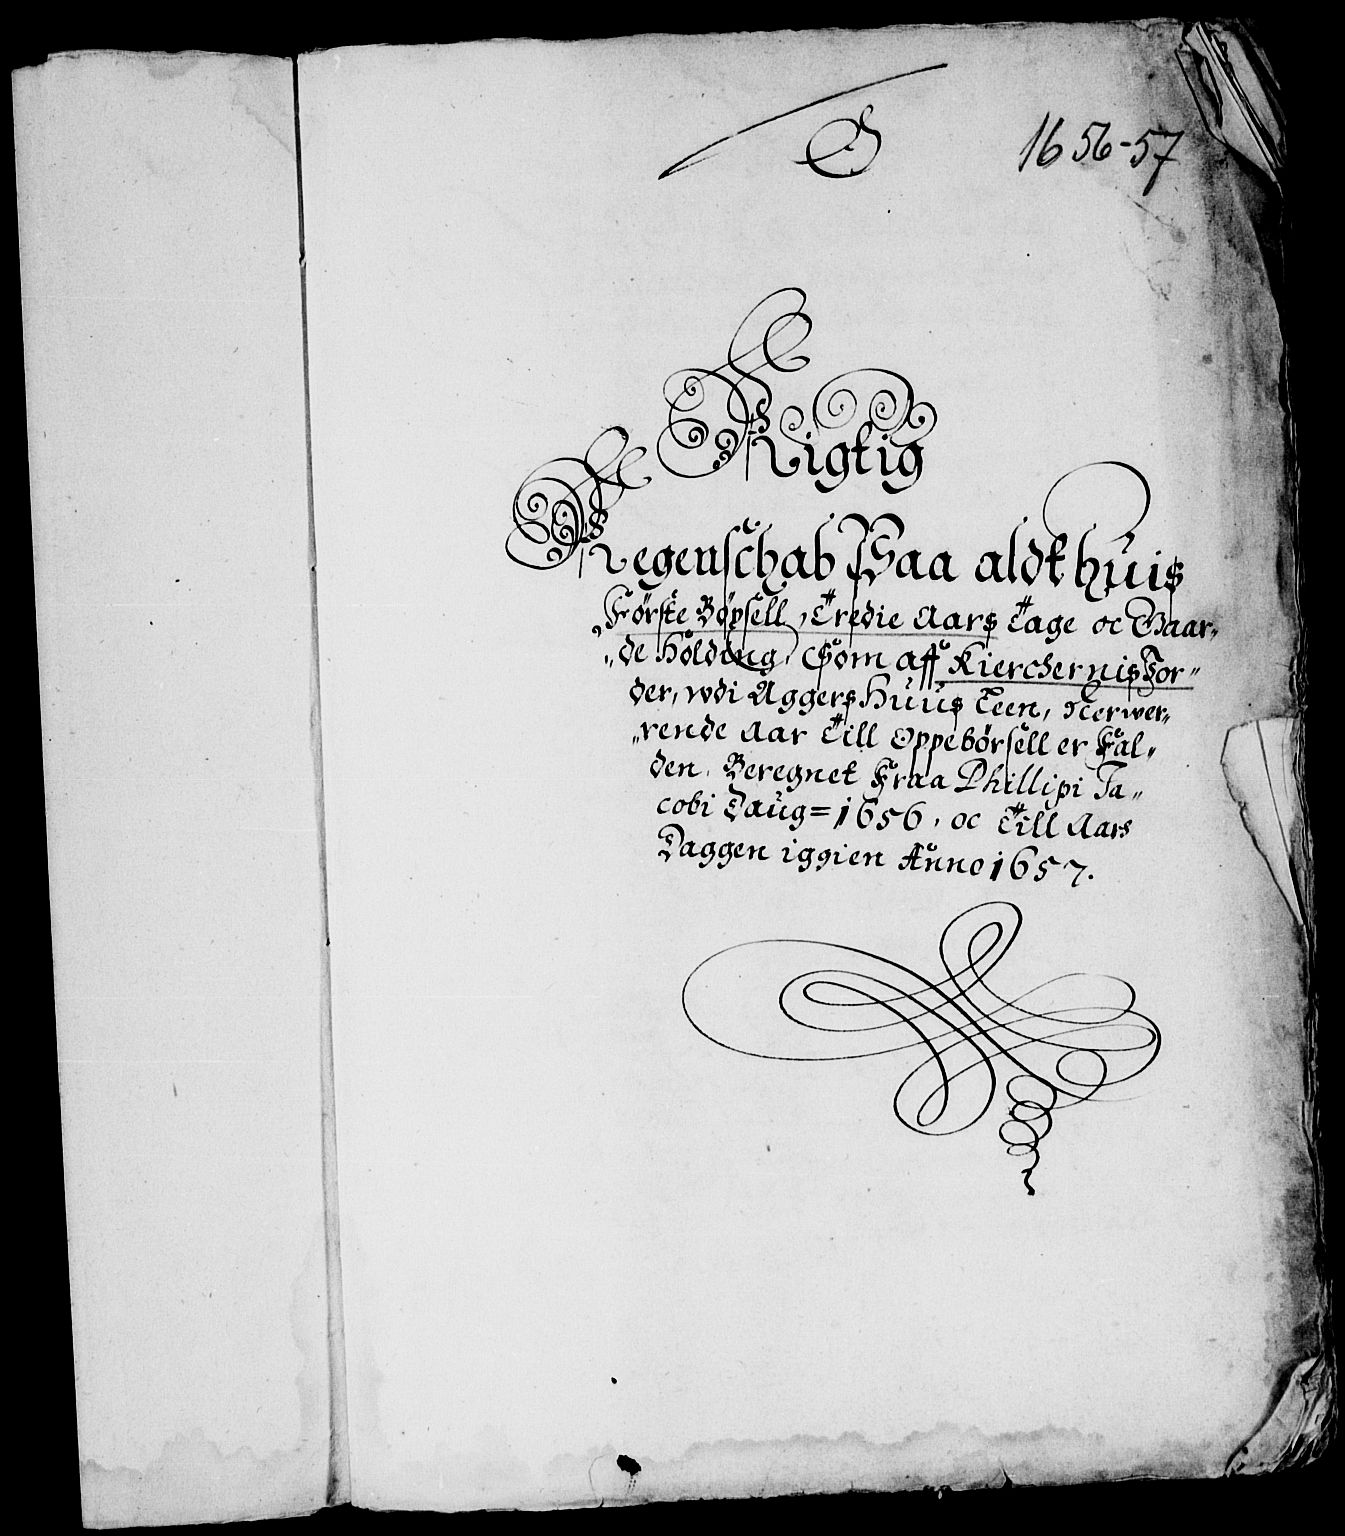 G
1656-57
Rigtig
Regenschab Paa aldt huis
Første Bøxsell, Tredie Aars Tage oc Baar„
„de Holding, Som aff Kierchernis Jor„
der, udi Aggers Huus Leen, Nerwer„
„rende Aar Till Oppebørsell er Fal„
den. Beregnet Fraa Phillipi Ja„
cobi Daug= 1656, oc Till Aars
Daggen iggien Anno 1657.